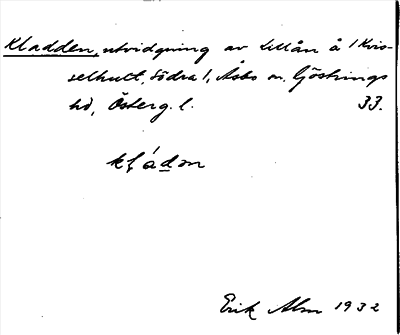 Kladden, utvidgning av Lillån å 1 Kvis-
selhult, Södra 1, Åsbo sn. Göstrings
hd, Österg. l. 33.
Erik Alm 1932